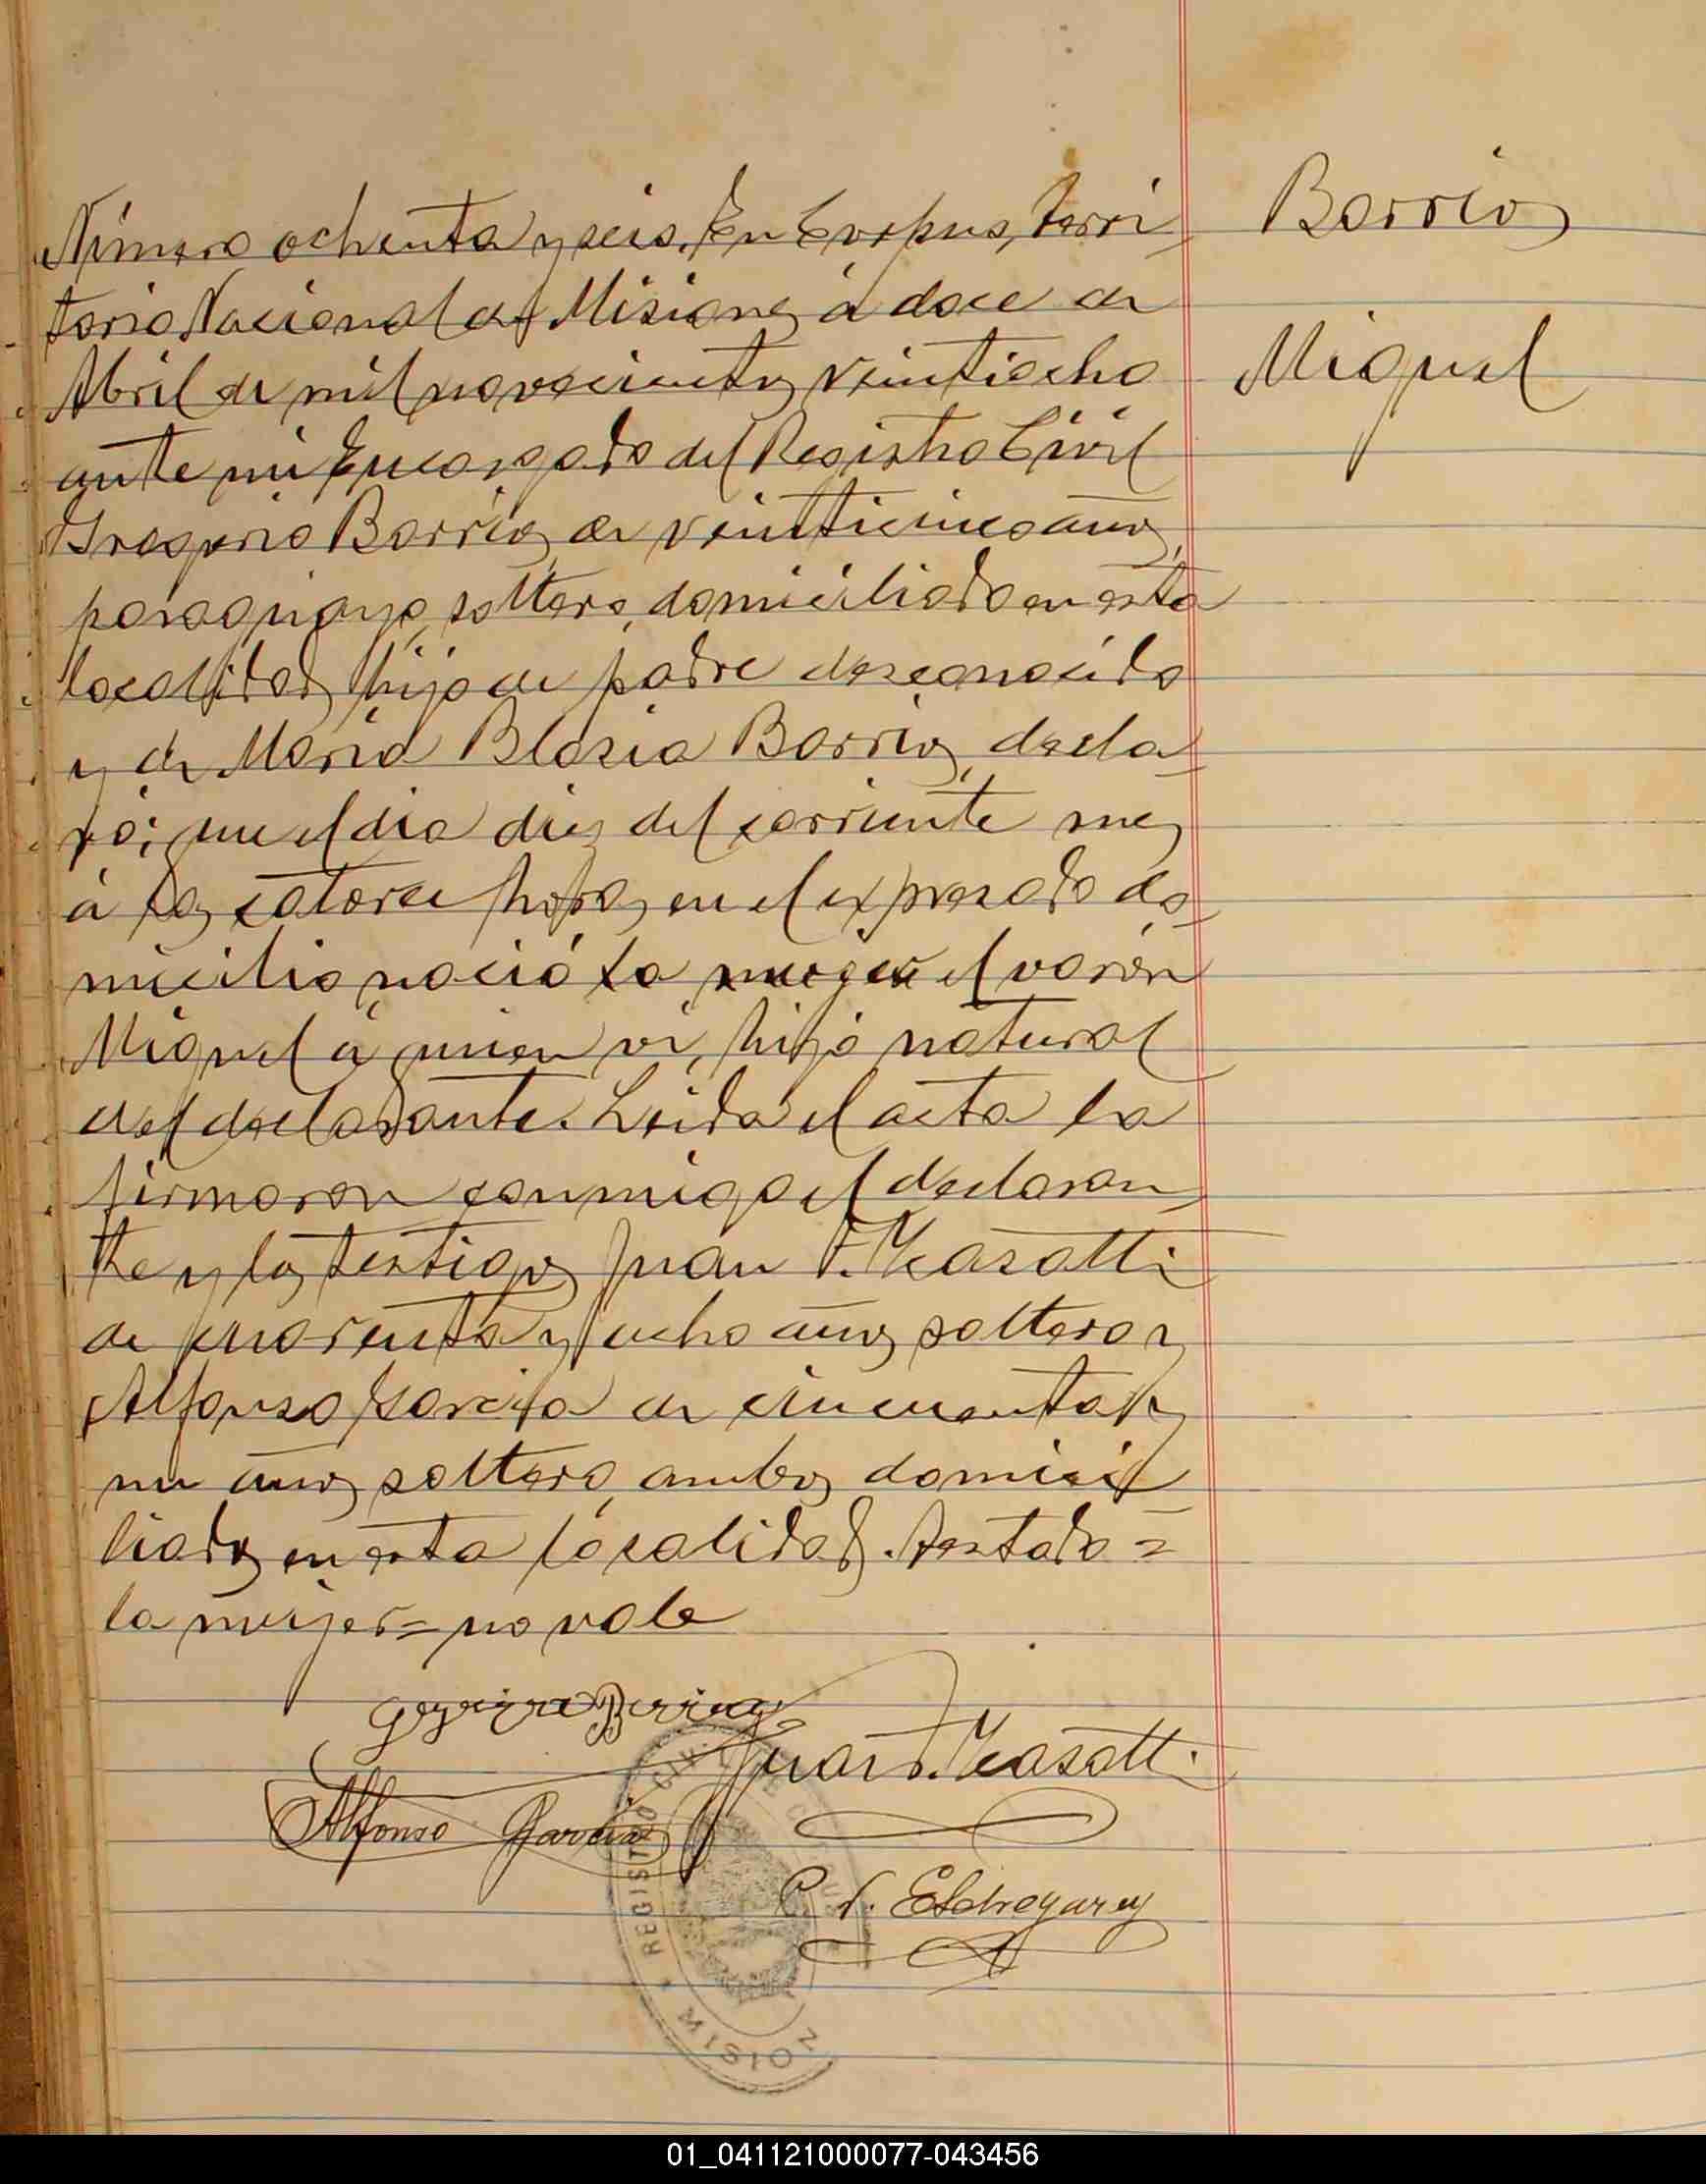 Barrios
Miguel
Número ochenta y seis. En Corpus, Terri
torio Nacional de Misiones á doce de
Abril de mil novecientos veintiocho
ante mi Encargado del Registro Civil
Gregorio Barrios, de veinticinco años,
paraguayo, soltero, domiciliado en esta
localidad, hijo de padre desconocido
y de Maria Blasia Barrios, decla
ró: que el dia diez del corriente mes
á las catorce horas en el expresado do
micilio nació la muger el varón
Miguel á quien vi, hijo natural
del declarante. Leida el acta la
firmaron conmigo el declaran
te y los testigos Juan F. Kasatti
de cuarenta y ocho años, soltero y
Alfonso Garcia de cincuenta y
un años soltero, ambos domici
liados en esta localidad. Testado=
la mujer= no vale
Gregorio Barrios
Juan F. Kasatti
Alfonso Garcia
Etchegarey
REGISTRO CIVIL DE CORPUS
MISION
01_041121000077-043456